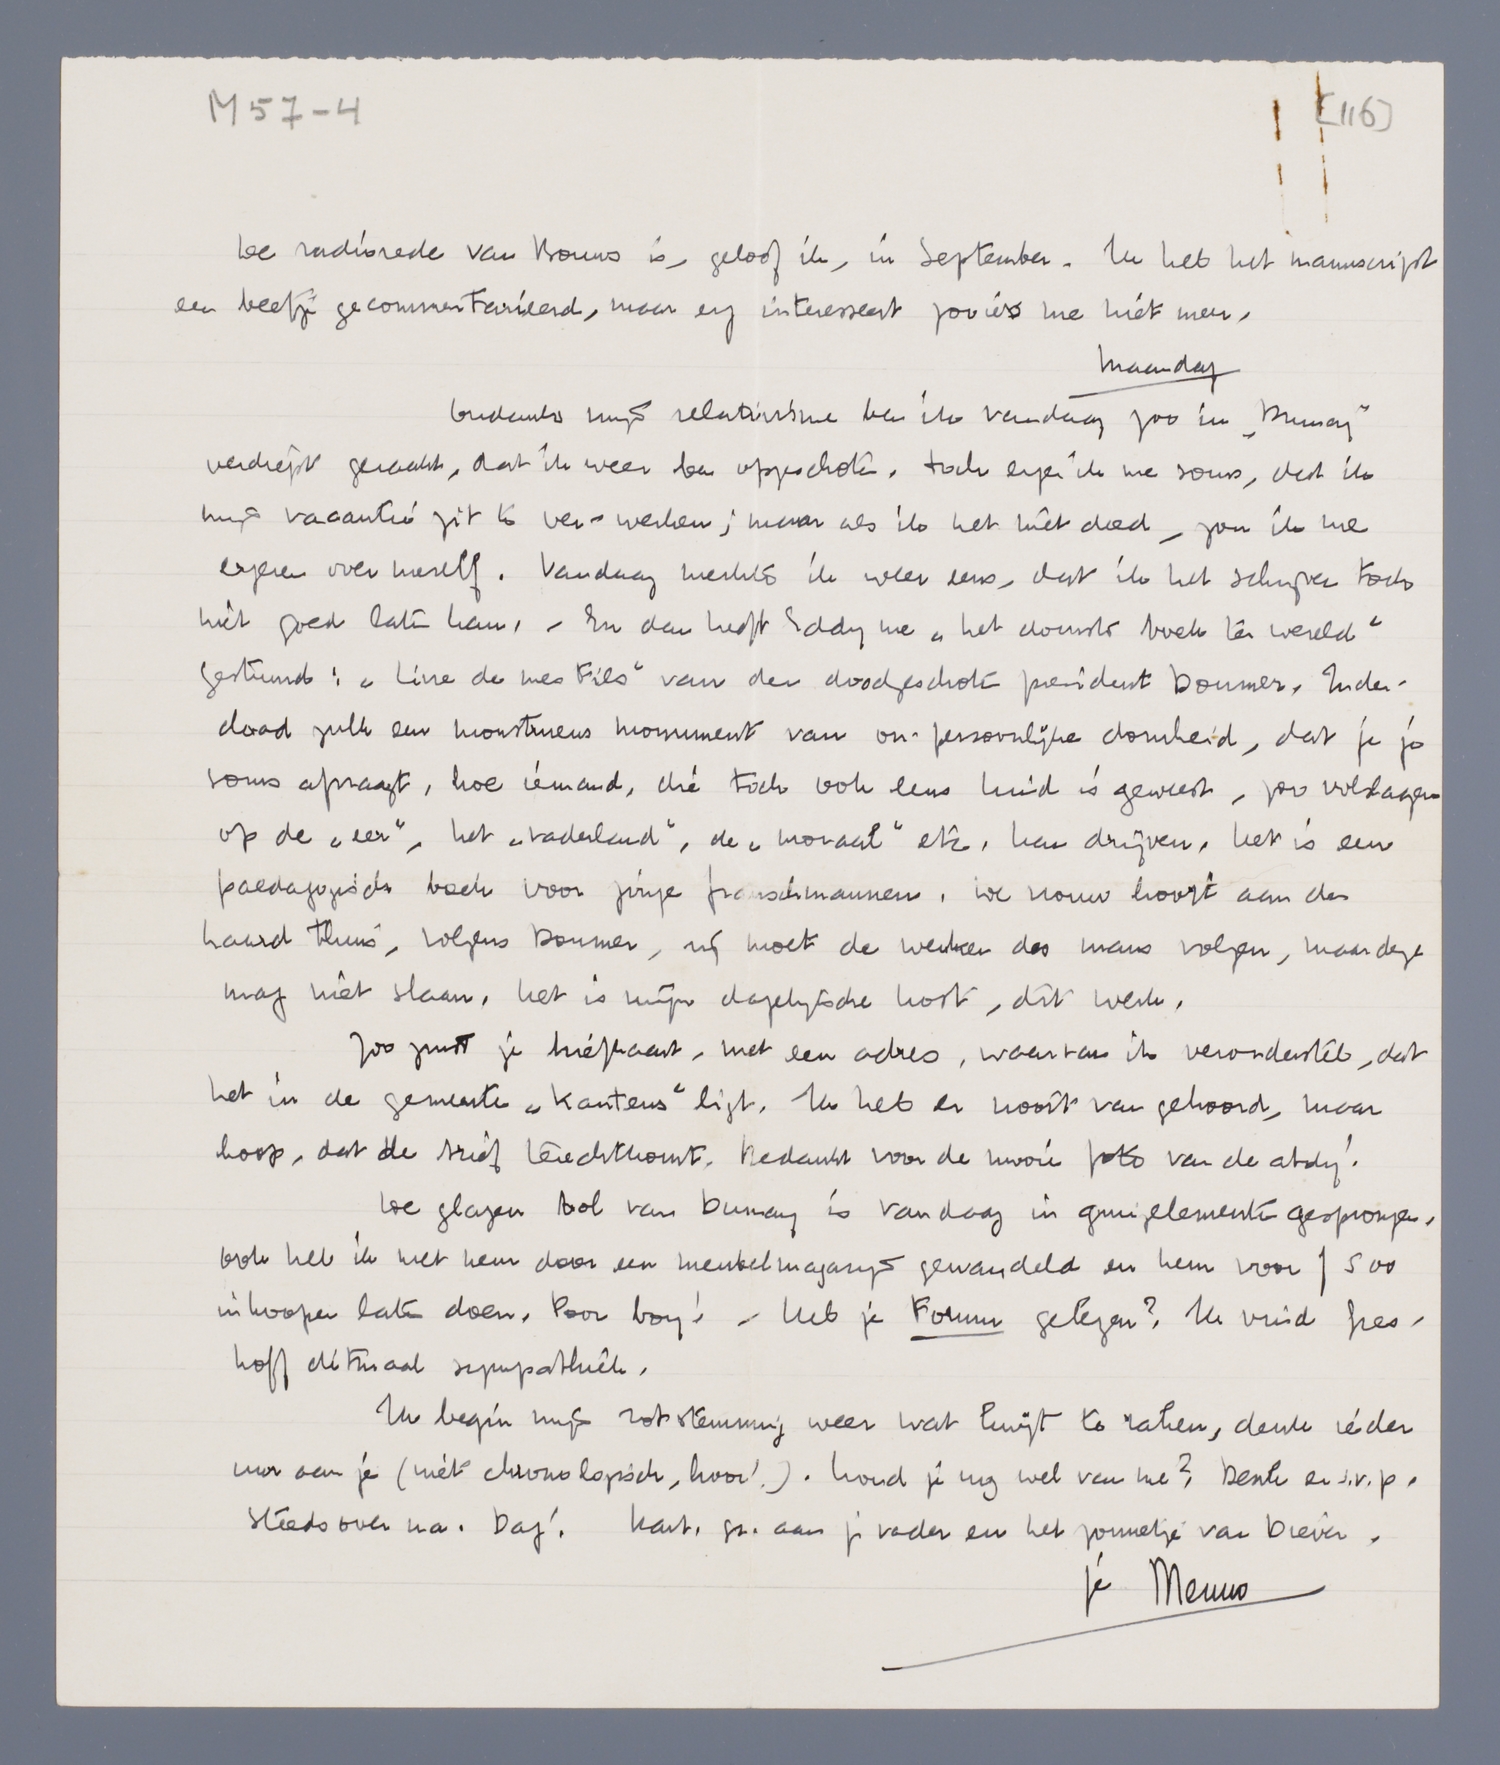 M57-4
[116]
De radiorede van Bouws is, geloof ik, in September. Ik heb het manuscript
een beetje gecommentarieerd, maar erg interesseert zooiets me niet meer.
Maandag
Ondanks mijn relativisme ben ik vandaag zoo in „Dumay"
verdiept geraakt, dat ik weer ben opgeschoten. Toch erger ik me soms, dat ik
mijn vacantie zit te ver-werken; maar als ik het niet deed, zou ik me
ergeren over mezelf. Vandaag merkte ik weer eens, dat ik het schrijven toch
niet goed laten kan. - En dan heeft Eddy me „het domste boek ter wereld"
gestuurd: „Livre de mes Fils" van den doodgeschoten president Doumer. Inder-
daad zulk een monstrueus monument van on-persoonlijke domheid, dat je je
soms afvraagt, hoe iemand, die toch ook eens kind is geweest, zoo volslagen
op de „eer", het „vaderland", de „moraal" etc. kan drijven. Het is een
paedagogisch boek voor jonge franschmannen. De vrouw hoort aan den
haard thuis, volgens Doumer, zij moet de wenken des mans volgen, maar deze
mag niet slaan. Het is mijn dagelijksche kost, dit werk.
Zoo juist je briefkaart, met een adres, waarvan ik veronderstel, dat
het in de gemeente „Kantens" ligt. Ik heb er nooit van gehoord, maar
hoop, dat de brief terechtkomt. Bedankt voor de mooie foto van de abdij!
De glazen bol van Dumay is vandaag in gruizelementen gesprongen.
Ook heb ik met hem door een meubelmagazijn gewandeld en hem voor f 500
inkoopen laten doen. Poor boy! - Heb je Forum gelezen? Ik vind Gres-
hoff ditmaal sympathiek.
Ik begin mijn rotstemming weer wat kwijt te raken, denk ieder
uur aan je (niet chronologisch, hoor!). Houd je nog wel van me? Denk er s.v.p.
steeds over na. Dag! Hart. gr. aan je vader en het zonnetje van Diever.
je Menno